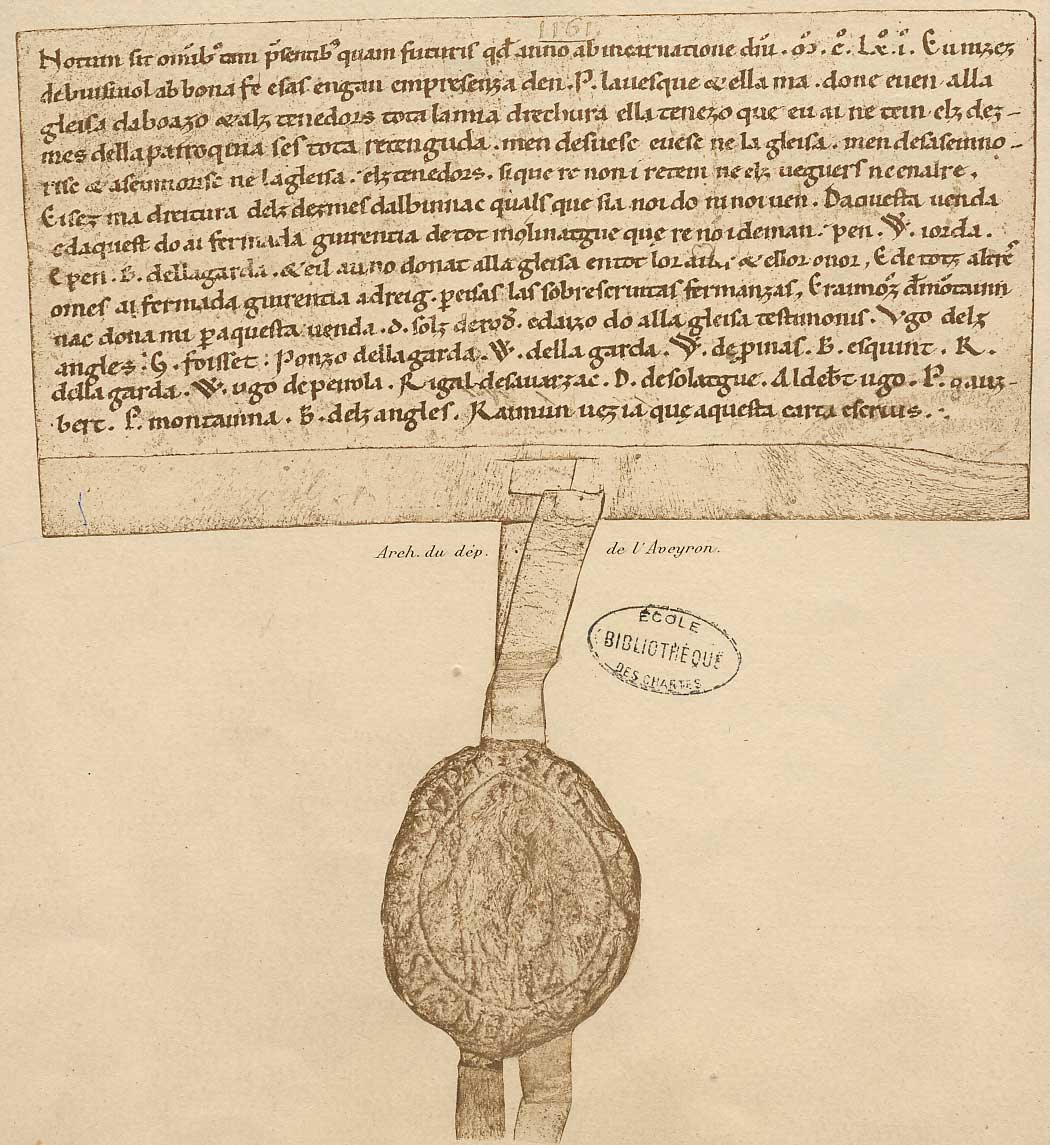 1161
Notum sit omīb' tam p̄sentib' quam futuris qđ anno ab incarnatione dn̄i . ϖ̊ . c̊ . Lx̊ . i̊ . Eu
debuisinol ab bona fe esas engan empresenza den . P . lauesque & ella ma . done euen alla
gleisa daboazo & alz tenedors tota lanma drechura ella tenezo que eu ai ne tein elz dez-
mes della parroquia ses tota retenguda . men desuese euese ne la gleisa . men desasenno-
risc & asennorisc ne la gleisa . elz tenedors . si que re non i retein ne elz ueguers ne enalre .
E isez ma dreitura delz dezmes dalbinnac quals que sia noi do ni noi uen . Daquesta uenda
edaquest do ai fermada guirentia de tot molinatgue que re no i deman . pen . W . iorda .
E pen . B . dellagarda . & eil auno donat alla gleisa en tot lor & ellor onor , E de totz altrē
omes ai fermada guirentia adreig . pensas las sobrescriutas fermanzas , E raimōz đmōtainn
nac dona mi ꝑ aquesta uenda . d . solz derođ . edaizo do alla gleisa testimonis . Vgo delz
angles . G . foisset : Ponzo dellagarda . W . della garda . W . de pinas . B . esquint . R .
della garda . W . ugo de peirola . Rigal desauarzac . D . desolatgue . Aldeb̄t ugo . P . gauz-
bert . P . montainna . B . delz angles . Raimun uezia que aquesta carta escrius .
Arch. du dép. de l'Aveyron.
ÉCOLE
BIBLIOTHÈQUE
DES CHARTES